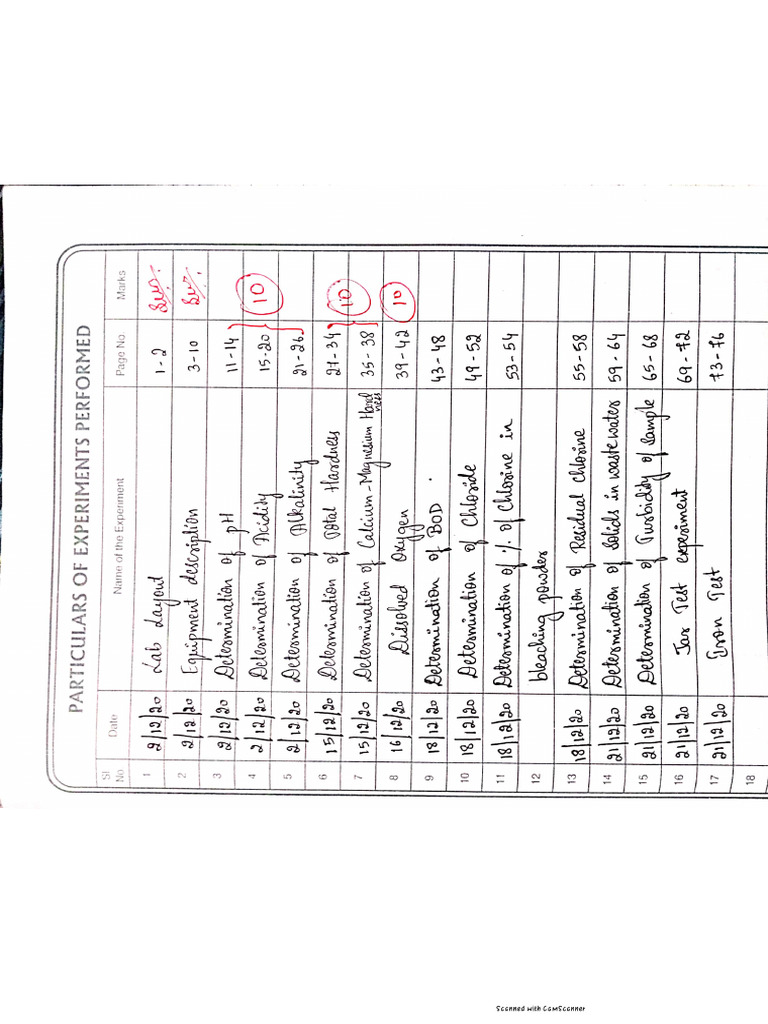 PARTICULARS OF EXPERIMENTS PERFORMED
Sl No Date Name of the Experiment Page No. Marks
1 2/12/20 Lab Layout 1-2
2 2/12/20 Equipment description 3-10
3 2/12/20 Determination of pH 11-14
4 2/12/20 Determination of Acidity 15-20 10
5 2/12/20 Determination of Alkalinity 21-26
6 15/12/20 Determination of Total Hardness 27-34
7 15/12/20 Determination of Calcium-Magnesium Hardness 35-38 10
8 16/12/20 Dissolved Oxygen 39-42 10
9 18/12/20 Determination of BOD. 43-48
10 18/12/20 Determination of Chloride 49-52
11 18/12/20 Determination of % of Chlorine in 53-54
12 bleaching powder
13 18/12/20 Determination of Residual Chlorine 55-58
14 21/12/20 Determination of Solids in wastewater 59-64
15 21/12/20 Determination of Turbidity of Sample 65-68
16 21/12/20 Jar Test experiment 69-72
17 21/12/20 Iron Test 73-76
18
Scanned with CamScanner